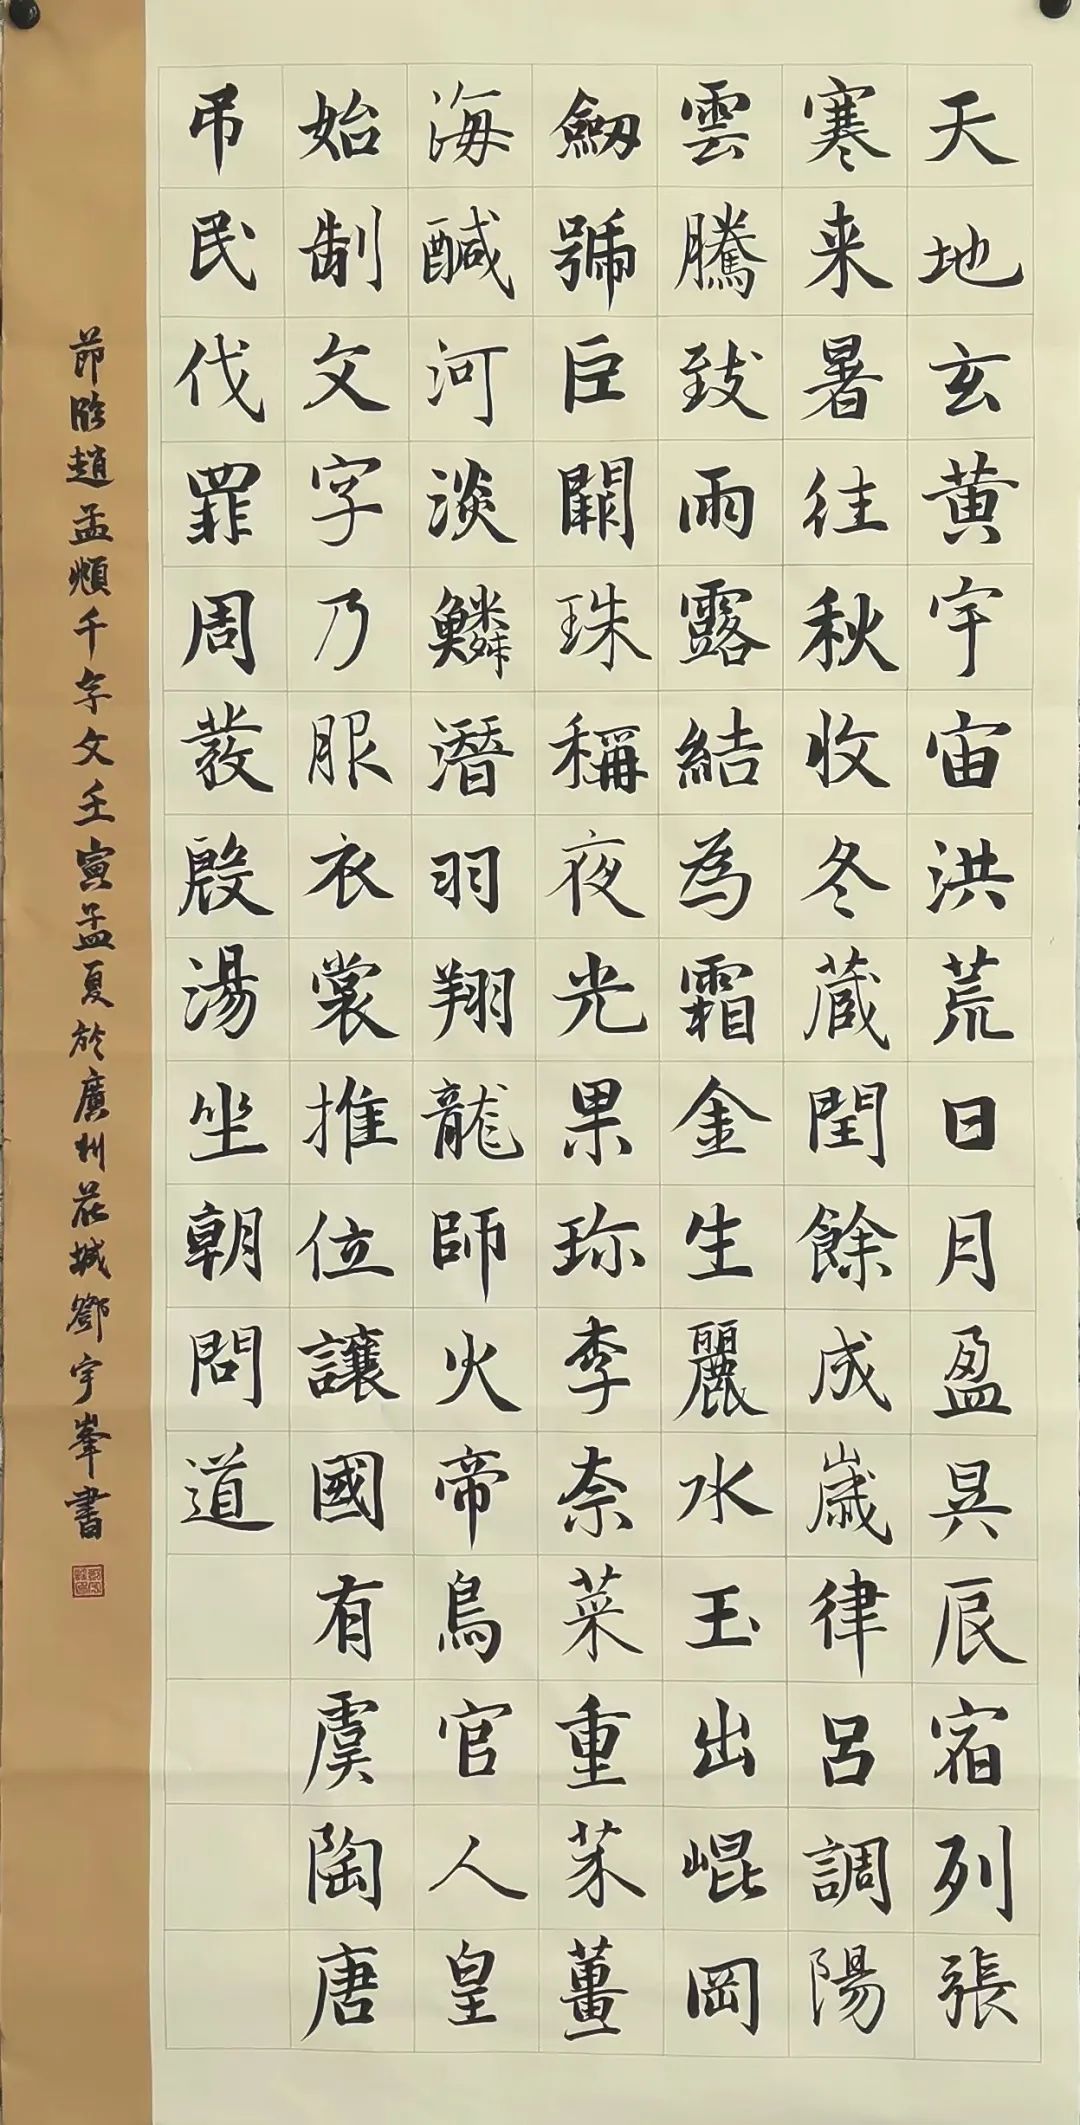 天地玄黄宇宙洪荒日月盈昃辰宿列張
寒来暑往秋收冬蔵閏餘成歲律呂調陽
雲騰致雨露結為霜金生麗水玉出崐岡
劒號巨闕珠稱夜光果珎李柰菜重芥薑
海醎河淡鱗潛羽翔龍師火帝鳥官人皇
始制文字乃服衣裳推位讓國有虞陶唐
弔民伐罪周發殷湯坐朝問道
節臨趙孟頫千字文壬寅孟夏於廣州花城鄧宇峯書